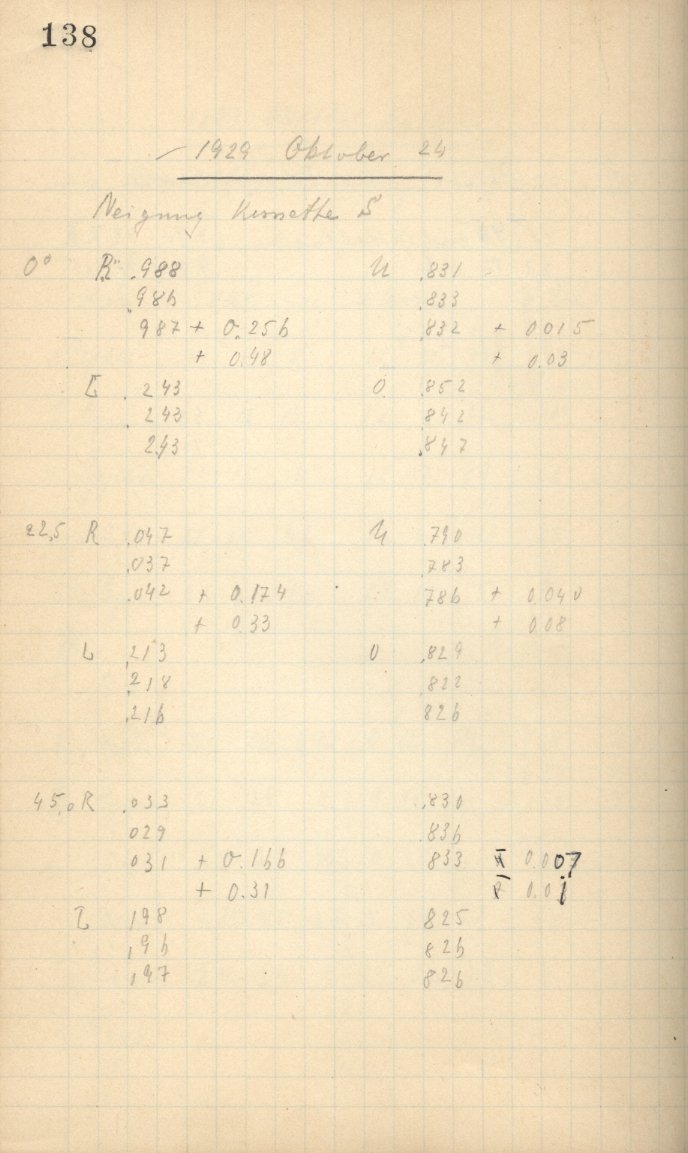 138
1929 Oktober 24
Neigung Kassette S
0° R .988 U .831
.986 .833
.987 + 0.256 .832 + 0.015
+ 0.48 + 0.03
L .243 O .852
.243 .842
.243 .847
22,5 R .047 U .790
.037 .783
.042 + 0.174 786 + 0.040
+ 0.33 + 0.08
L .213 O .829
.218 .822
.216 826
45,0 R .033 .830
029 .836
031 + 0.166 833 0.007
+ 0.31 0.01
L 198 825
,96 826
,97 826